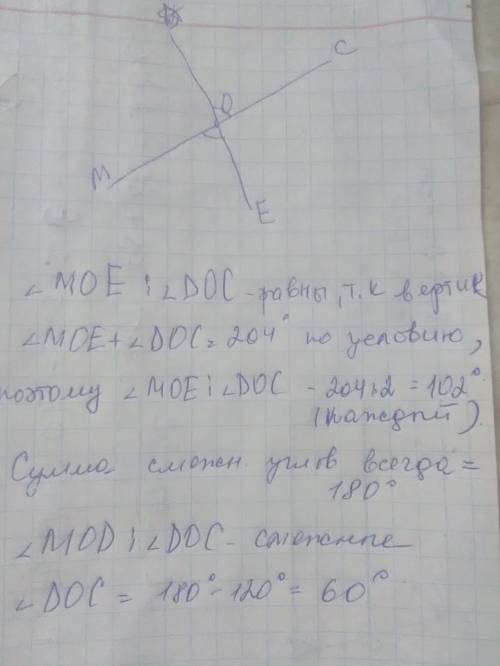 O
C
M
E
∠MOE i ∠DOC - равны, т.к вертик
∠MOE + ∠DOC = 204° по условию,
поэтому ∠MOE i ∠DOC - 204:2 = 102°
(каждый).
Сумма смежн. углов всегда =
180°
∠MOD i ∠DOC - смежные
∠DOC = 180° - 120° = 60°